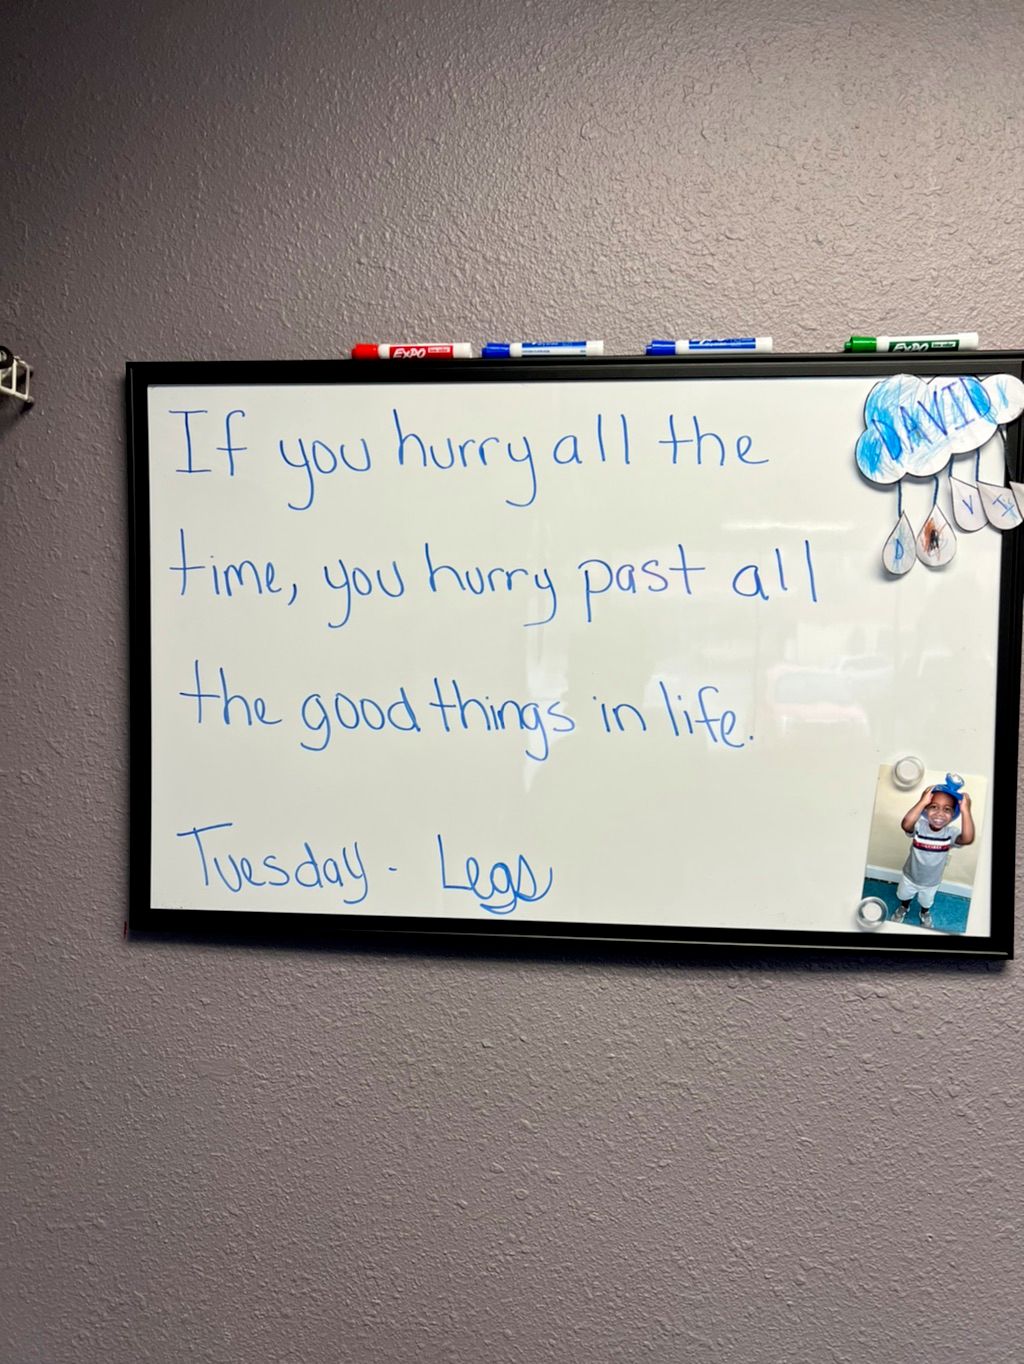 EXPO
EXPO
If you hurry all the
time, you hurry past all
the good things in life.
Tuesday - Legs
DAVID
D
V